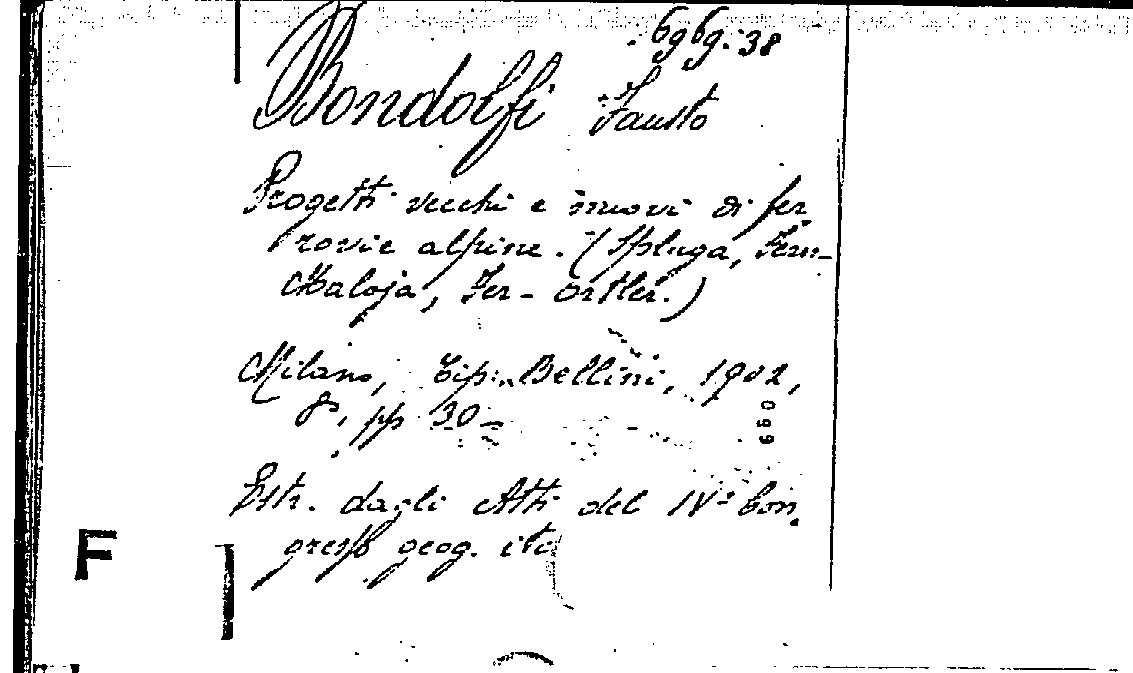 6969.38
Bondolfi Fausto
Progetti vecchi e nuovi di fer
rovie alpine. (Spluga, Fern-
Maloja, Fer- Ortler.)
Milano, Tip. Bellini, 1902,
8°, pp 30
Estr. dagli Atti del IV° Con
gresso geog. ita
F